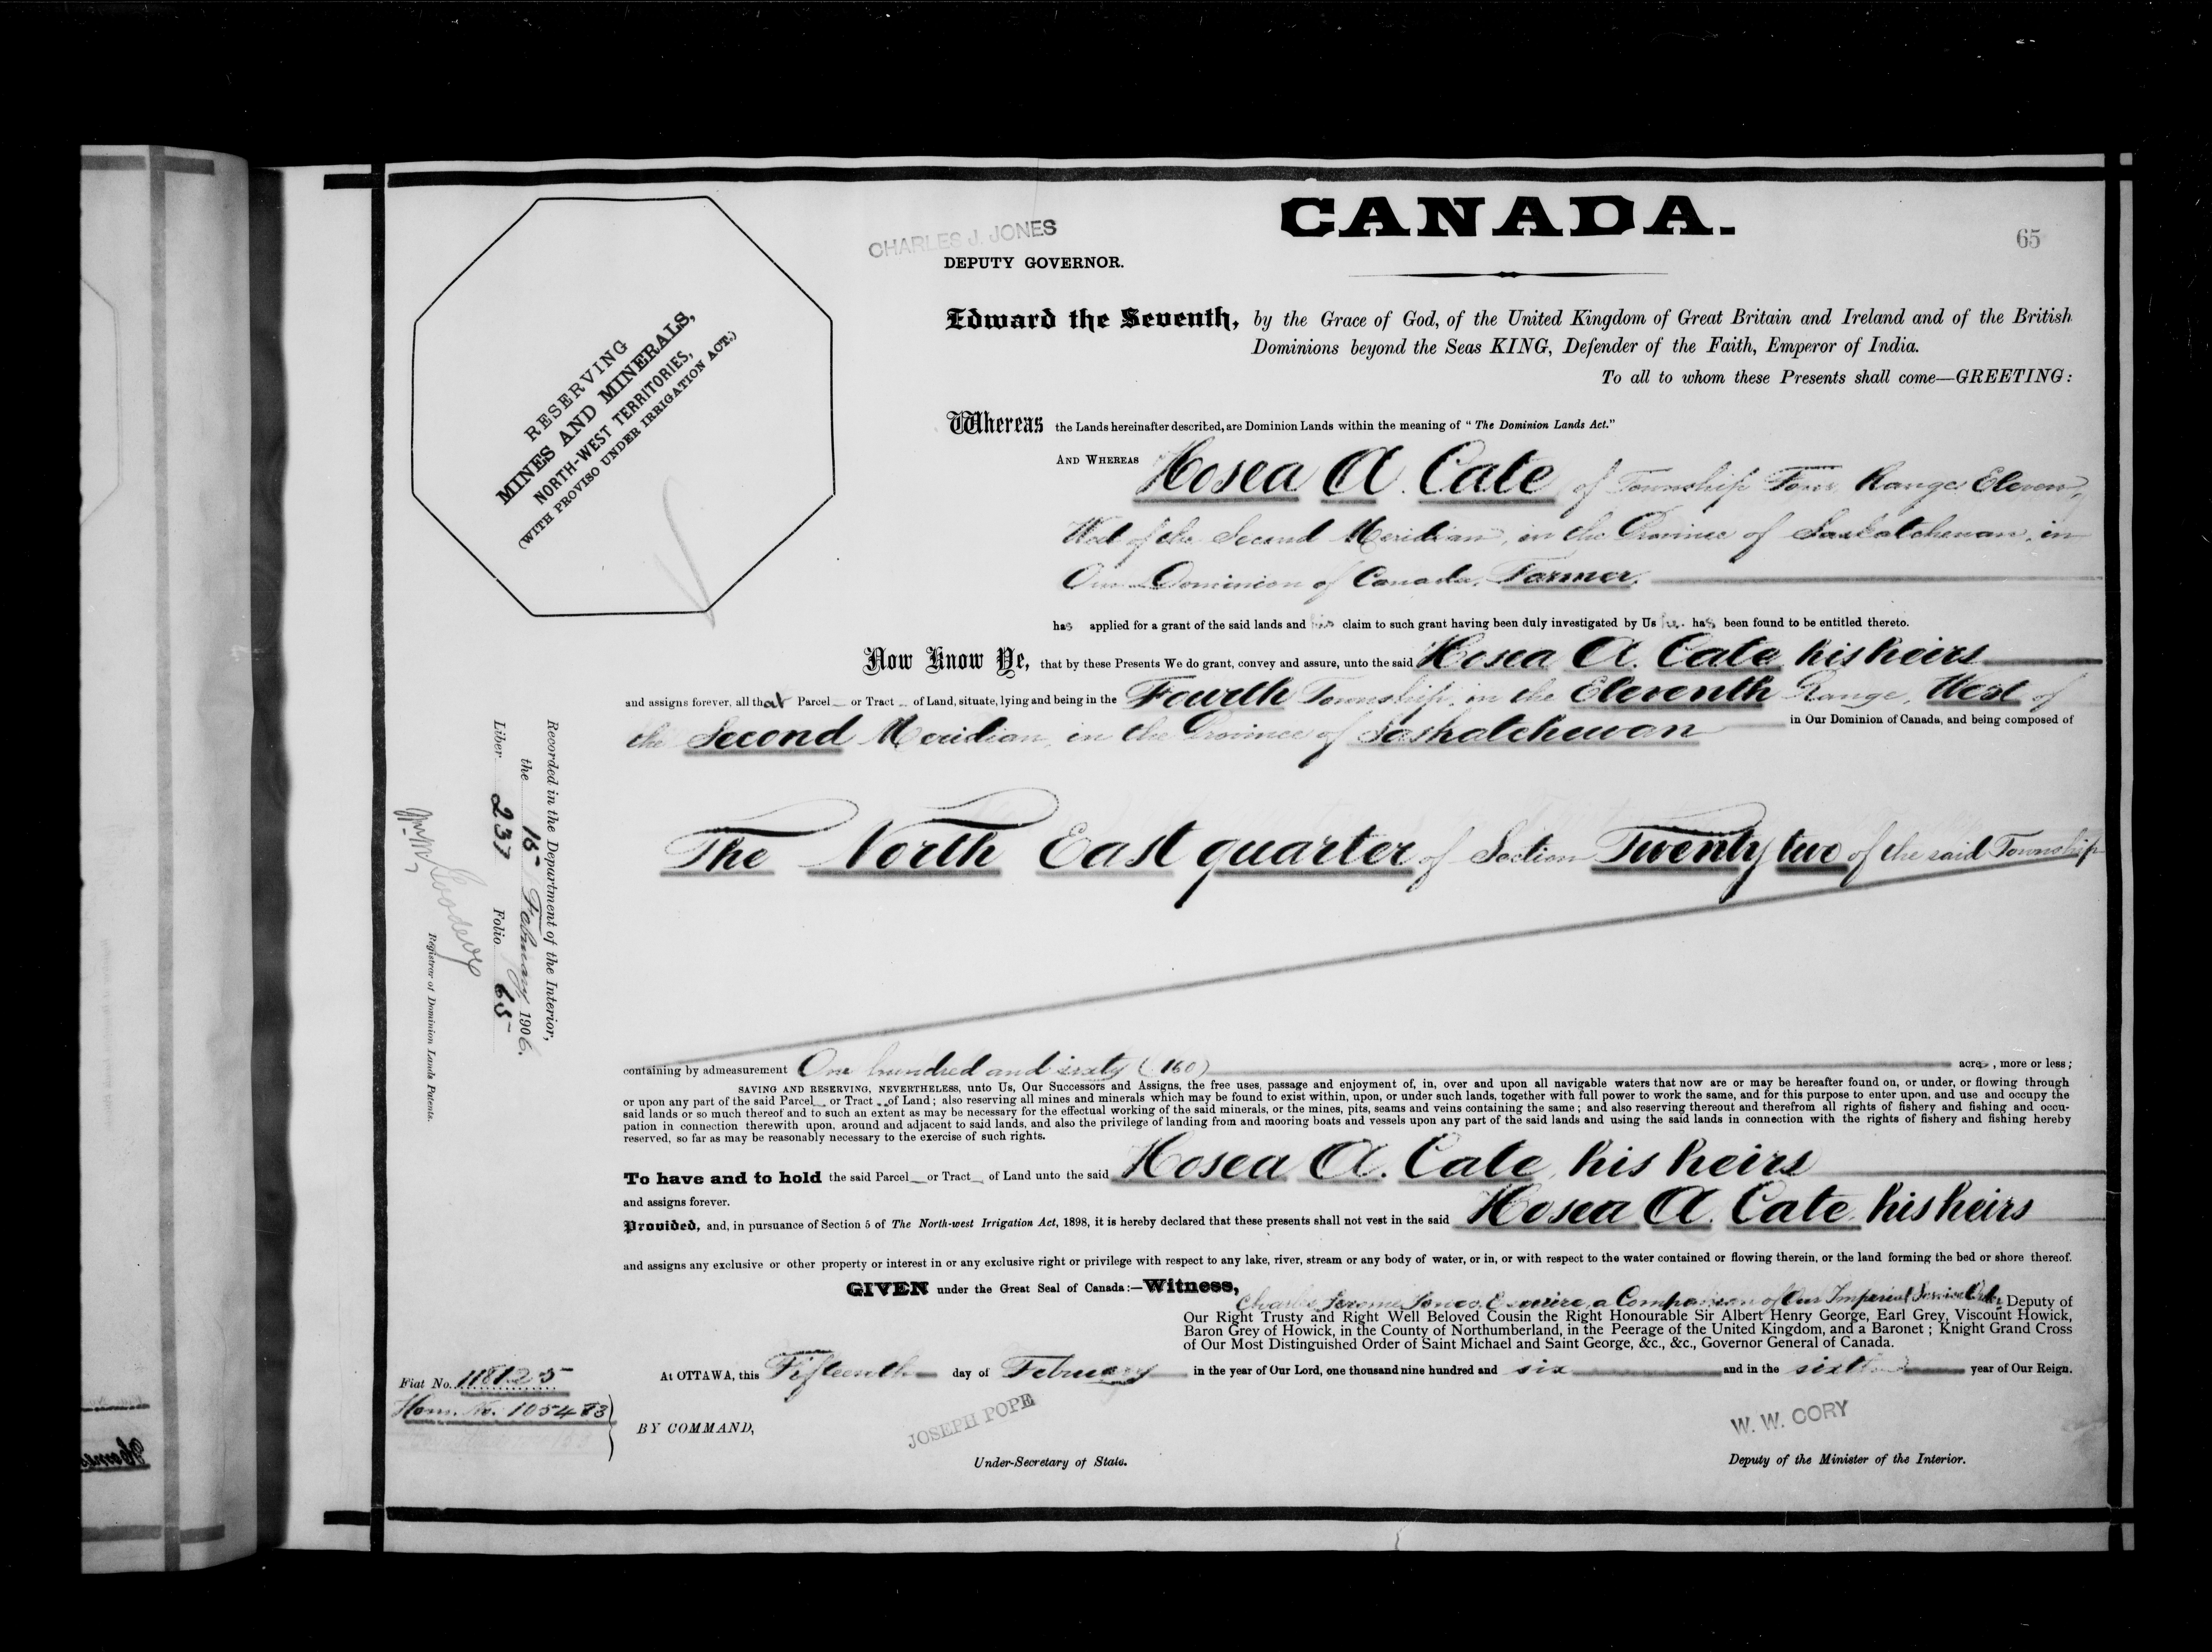 CANADA.
65
CHARLES J. JONES
DEPUTY GOVERNOR.
RESERVING
MINES AND MINERALS,
NORTH-WEST TERRITORIES,
(WITH PROVISO UNDER IRRIGATION ACT.)
Edward the Seventh, by the Grace of God, of the United Kingdom of Great Britain and Ireland and of the British
Dominions beyond the Seas KING, Defender of the Faith, Emperor of India.
To all to whom these Presents shall come—GREETING:
Whereas the Lands hereinafter described, are Dominion Lands within the meaning of "The Dominion Lands Act."
AND WHEREAS Hosea A. Cate of Township Four Range Eleven,
West of the Second Meridian, in the Province of Saskatchewan, in
Our Dominion of Canada, Farmer.
has applied for a grant of the said lands and his claim to such grant having been duly investigated by Us he has been found to be entitled thereto.
Now Know Ye, that by these Presents We do grant, convey and assure, unto the said Hosea A. Cate his heirs
and assigns forever, all that Parcel or Tract of Land, situate, lying and being in the Fourth Township, in the Eleventh Range, West of
the Second Meridian, in the Province of Saskatchewan in Our Dominion of Canada, and being composed of
The North East quarter of Section Twenty two of the said Township
containing by admeasurement One hundred and sixty (160) acres, more or less;
SAVING AND RESERVING, NEVERTHELESS, unto Us, Our Successors and Assigns, the free uses, passage and enjoyment of, in, over and upon all navigable waters that now are or may be hereafter found on, or under, or flowing through
or upon any part of the said Parcel or Tract of Land; also reserving all mines and minerals which may be found to exist within, upon, or under such lands, together with full power to work the same, and for this purpose to enter upon, and use and occupy the
said lands or so much thereof and to such an extent as may be necessary for the effectual working of the said minerals, or the mines, pits, seams and veins containing the same; and also reserving thereout and therefrom all rights of fishery and fishing and occu-
pation in connection therewith upon, around and adjacent to said lands, and also the privilege of landing from and mooring boats and vessels upon any part of the said lands and using the said lands in connection with the rights of fishery and fishing hereby
reserved, so far as may be reasonably necessary to the exercise of such rights.
To have and to hold the said Parcel or Tract of Land unto the said Hosea A. Cate, his heirs
and assigns forever.
Provided, and, in pursuance of Section 5 of The North-west Irrigation Act, 1898, it is hereby declared that these presents shall not vest in the said Hosea A. Cate his heirs
and assigns any exclusive or other property or interest in or any exclusive right or privilege with respect to any lake, river, stream or any body of water, or in, or with respect to the water contained or flowing therein, or the land forming the bed or shore thereof.
GIVEN under the Great Seal of Canada:—Witness,
Charles Jerome Jones, Esquire, a Companion of Our Imperial Service Order, Deputy of
Our Right Trusty and Right Well Beloved Cousin the Right Honourable Sir Albert Henry George, Earl Grey, Viscount Howick,
Baron Grey of Howick, in the County of Northumberland, in the Peerage of the United Kingdom, and a Baronet; Knight Grand Cross
of Our Most Distinguished Order of Saint Michael and Saint George, &c., &c., Governor General of Canada.
At OTTAWA, this Fifteenth day of February in the year of Our Lord, one thousand nine hundred and six and in the sixth year of Our Reign.
Fiat No. 118125
Hom. No. 105483
BY COMMAND,
JOSEPH POPE
Under-Secretary of State.
W. W. CORY
Deputy of the Minister of the Interior.
Recorded in the Department of the Interior,
the 15 February 1906.
Liber 237 Folio 65
Registrar of Dominion Lands Patents.